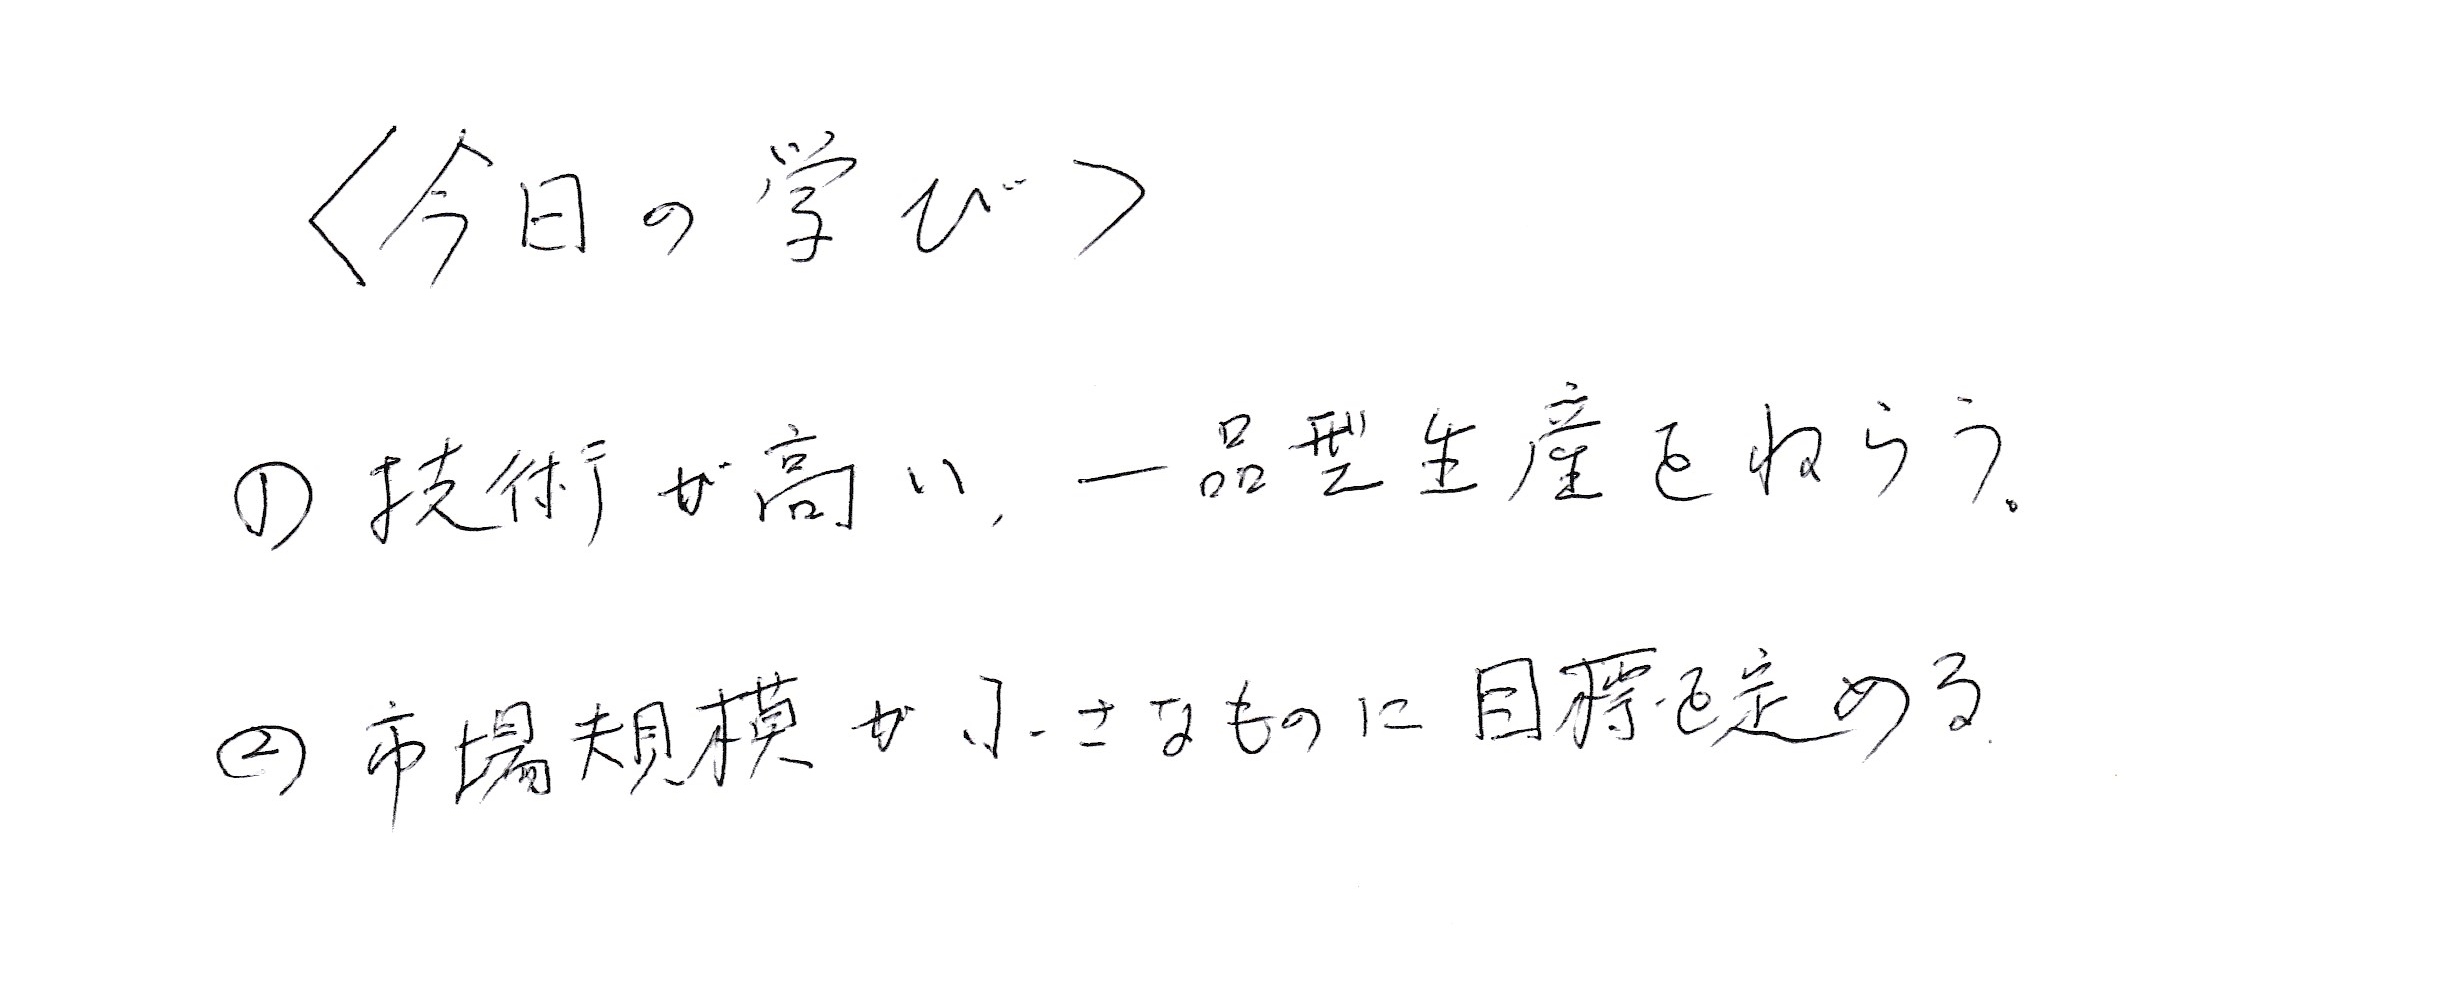 〈今日の学び〉
① 技術が高い、一品型生産をねらう。
② 市場規模が小さなものに目標を定める.